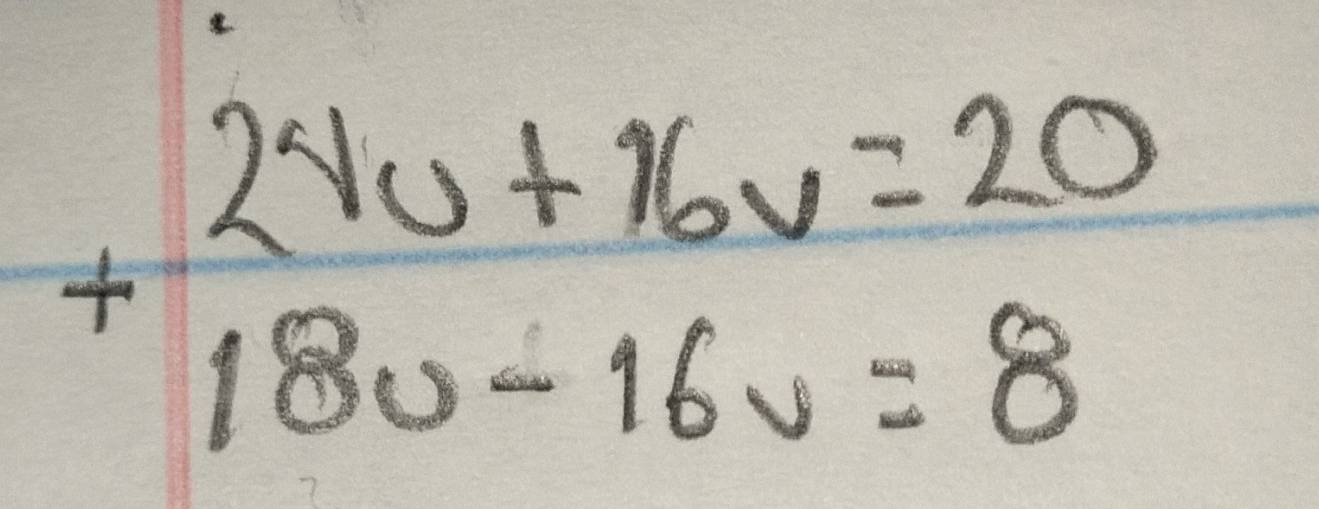 24u + 16v = 20
+ 18u - 16v = 8